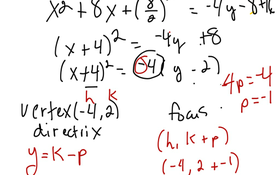 x² + 8x + (8/2)² = -4y - 8 + 16
(x + 4)² = -4y + 8
(x + 4)² = -4(y - 2)
h k
4p = -4
p = -1
vertex (-4, 2)
directrix
y = k - p
focus
(h, k + p)
(-4, 2 + -1)